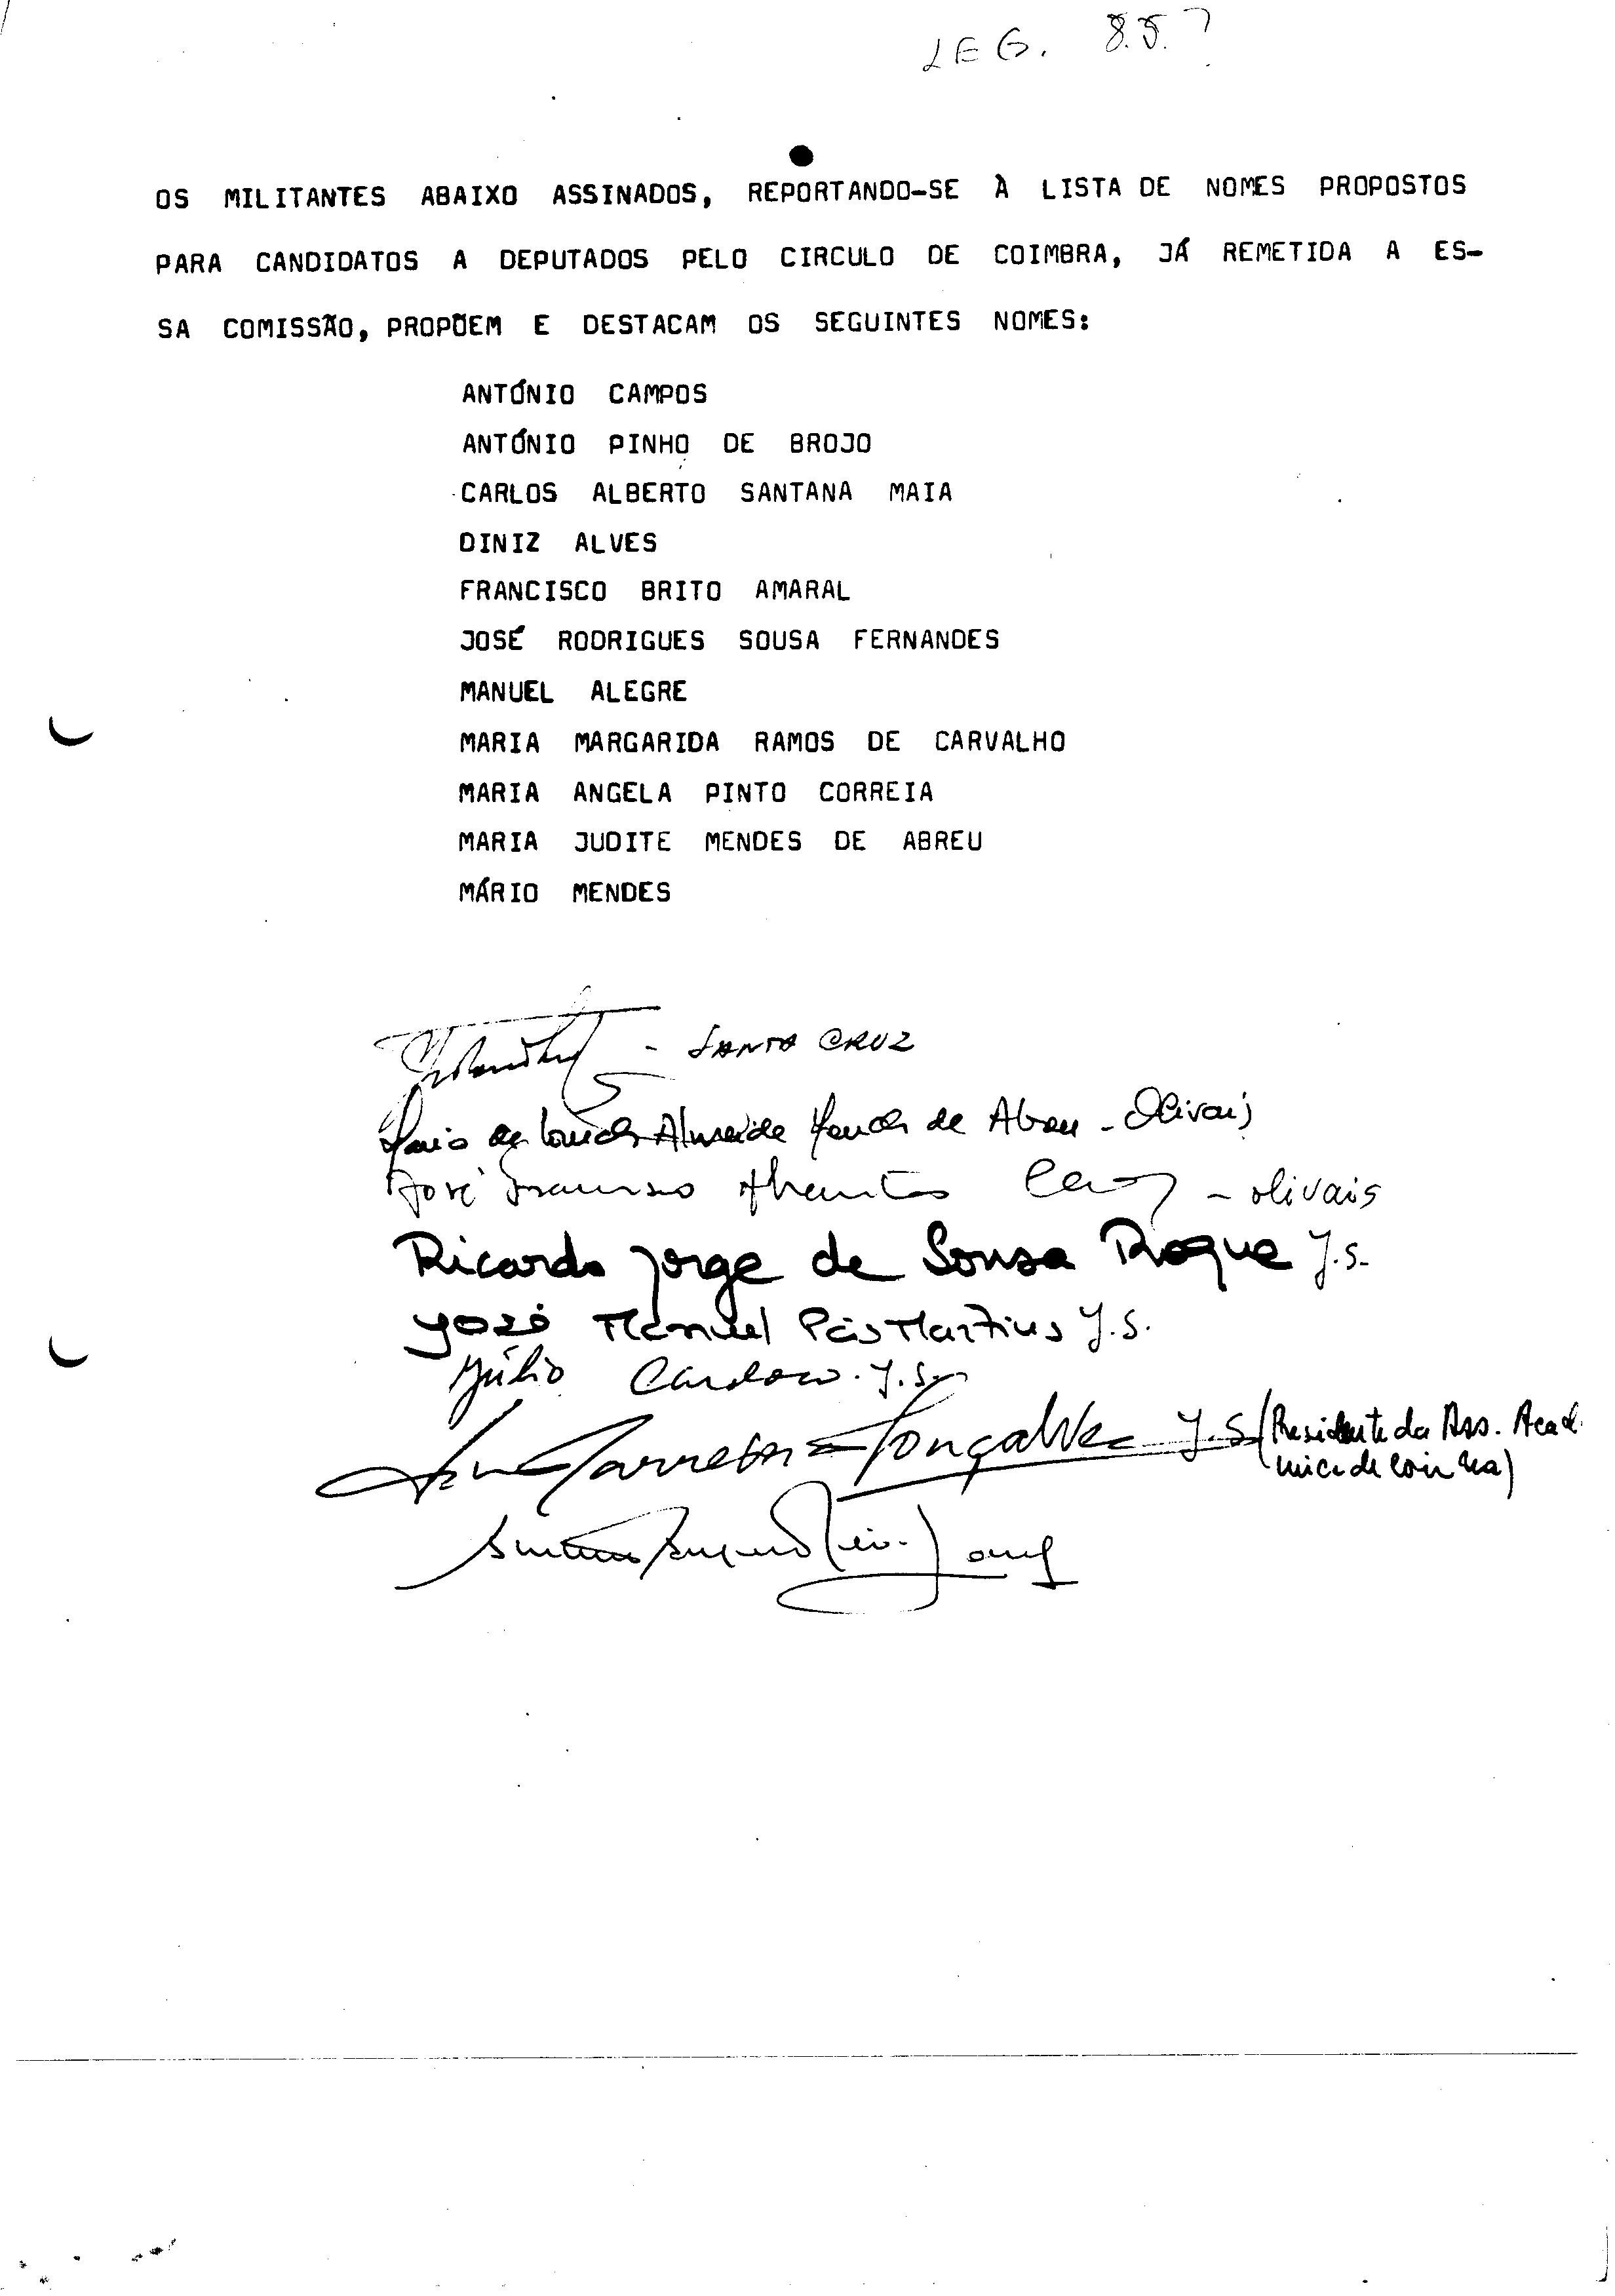 LEG. 85?
OS MILITANTES ABAIXO ASSINADOS, REPORTANDO-SE À LISTA DE NOMES PROPOSTOS
PARA CANDIDATOS A DEPUTADOS PELO CIRCULO DE COIMBRA, JÁ REMETIDA A ES-
SA COMISSÃO, PROPÕEM E DESTACAM OS SEGUINTES NOMES:
ANTÓNIO CAMPOS
ANTÓNIO PINHO DE BROJO
CARLOS ALBERTO SANTANA MAIA
DINIZ ALVES
FRANCISCO BRITO AMARAL
JOSÉ RODRIGUES SOUSA FERNANDES
MANUEL ALEGRE
MARIA MARGARIDA RAMOS DE CARVALHO
MARIA ANGELA PINTO CORREIA
MARIA JUDITE MENDES DE ABREU
MÁRIO MENDES
- SANTA CRUZ
Almeida de Abreu - Olivais
José Francisco - Olivais
Ricardo Jorge de Sousa Roque J.S.
José Manuel Martins J.S.
Júlio Cardoso. J.S.
Gonçalves J.S. (Presidente da Ass. Acad.
mica de Coimbra)